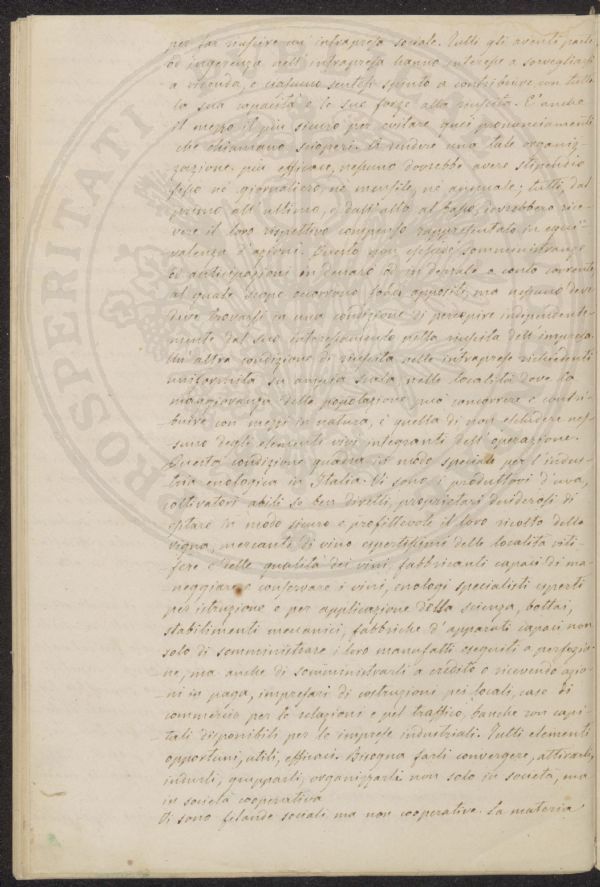 per far riuscire un' intrapresa sociale. Tutti gli aventi parte
od ingerenza nell' intrapresa hanno interesse a sorvegliarsi
a vicenda, e ciascuno sentesi spinto a contribuire con tutta
la sua capacità e le sue forze alla riuscita. È anche
il mezzo il più sicuro per evitare quei pronunciamenti
che chiamano scioperi. A rendere una tale organiz-
zazione più efficace, nessuno dovrebbe avere stipendio
fisso nè giornaliero, nè mensile, nè annuale; tutti, dal
primo all' ultimo, e dall' alto al basso, dovrebbero rice-
vere il loro rispettivo compenso rappresentato in equi-
valenza d'azioni. Questo non esclude somministranze
ed anticipazioni in denaro od in derrate a conto corrente,
al quale scopo occorrono fondi appositi, ma nessuno deve
deve trovarsi in una condizione di percepire indipendente-
mente dal suo interessamento nella riuscita dell' impresa.
Un' altra condizione di riuscita nelle intraprese richiedenti
uniformità su ampia scala nelle località dove la
maggioranza della popolazione può concorrere e contri-
buire con mezzi in natura, è quella di non escludere nes-
suno degli elementi vivi integranti dell' operazione.
Questa condizione quadra in modo speciale per l'indus-
tria enologica in Italia. Vi sono i produttori d'uva,
coltivatori abili se ben diretti, proprietari desiderosi di
esitare in modo sicuro e profittevole il loro ricolto della
vigna, mercanti di vino espertissimi delle località viti-
fere e delle qualità dei vini, fabbricanti capaci di ma-
neggiare e conservare i vini, enologi specialisti esperti
per istruzione e per applicazione della scienza, bottai,
stabilimenti meccanici, fabbriche d' apparati capaci non
solo di somministrare i loro manufatti eseguiti a perfezio-
ne, ma anche di somministrarli a credito o ricevendo azio-
ni in paga, impresari di costruzione pei locali, case di
commercio per le relazioni e pel traffico, banche con capi-
tali disponibili per le imprese industriali. Tutti elementi
opportuni, utili, efficaci. Bisogna farli convergere, attirarli,
indurli, grupparli, organizzarli non solo in società, ma
in società cooperativa
Vi sono filande sociali ma non cooperative. La materia
PROSPERITATI